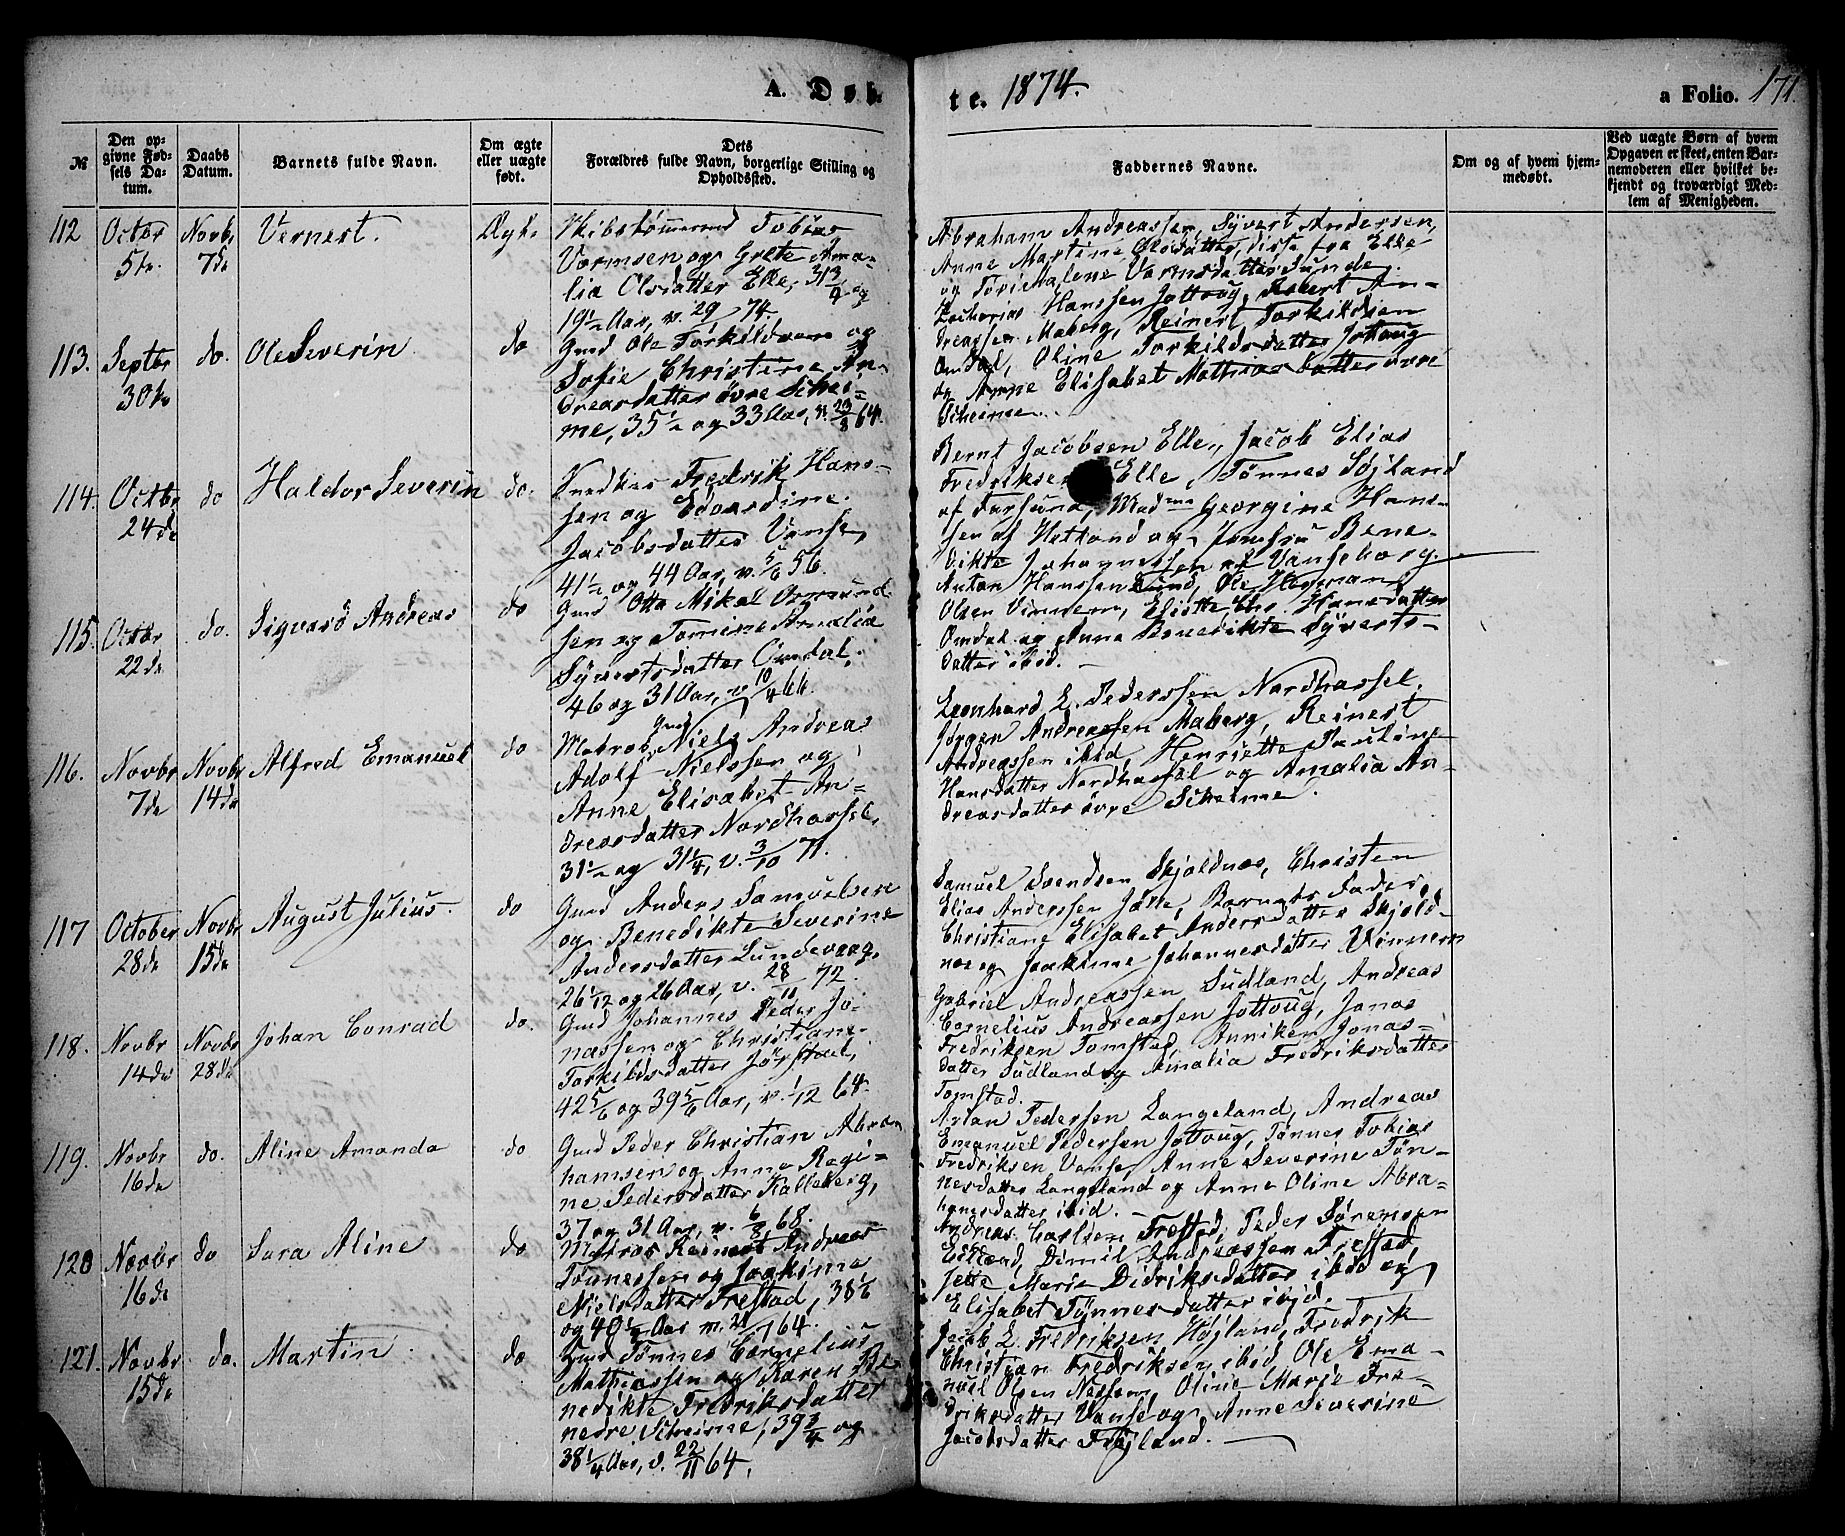 A. Døb-
te. 1874.
a Folio. 171.
№
Den op-
givne Fød-
sels Da-
tum.
Daabs
Datum.
Barnets fulde Navn.
Om ægte
eller uægte
født.
Dets
Forældres fulde Navn, borgerlige Stilling og
Opholdssted.
Faddernes Navne.
Om og af hvem hjem-
medøbt.
Ved uægte Børn af hvem
Opgaven er skeet, enten Bar-
nemoderen eller hvilket be-
kjendt og troværdigt Med-
lem af Menigheden.
112 Octbr Novbr Vernert. Ægte
5te 7de
Tobias
Vormsen og Grete Ama-
lia Olsdatter Elle, 31 3/4 og
19 1/2 Aar, v. 29 74.
Abraham Andreassen, Syvert Andersen,
Anne Martine Olsdatter, disse fra Elle
og Malene Vormsdatter Sunde.
113. Septbr do. Ole Severin do
30te
Gmd Ole Torkildsen og
Sofie Christine An-
dreasdatter øvre Schei-
me, 35 1/2 og 33 Aar, v. 23/8 64.
Zacharias Hanssen Jottoug, An-
dreassen Maberg, Reinert Torkildsen
Omdal, Oline Torkildsdatter Jottoug
og Anne Elisabet Mathiasdatter øvre
Scheime.
114. Octbr do Haldor Severin do.
24de
Snedker Fredrik Hans-
sen og Edvardine
Jacobsdatter Vanse,
41 1/2 og 44 Aar, v. 5/6 56.
Bernt Jacobsen Elle, Jacob Elias
Fredriksen Elle, Tønnes
af Farsund, Madme Georgine Hans-
sen af Hetland og Jomfru Bene-
dikte Johannessen af Vanseborg.
115. Octbr do. Sigvard Andreas do
22de
Gmd Otto Mikal
sen og Tomine Amalia
Syvertsdatter Omdal,
46 og 31 Aar, v. 10/4 66.
Anton Hanssen Lund, Ole Herman
Olsen Vinnem, Hansdatter
Omdal og Anna Benedikte Syverts-
datter ibid.
116. Novbr Novbr Alfred Emanuel do
7de 14de
Matros, Gmd Niels Andreas
Adolf Nielssen og
Anne Elisabet An-
dreasdatter Nordhassel,
31 1/2 og 31 1/4, v. 3/10 71.
Leonhard L. Pederssen Nordhassel,
Jørgen Andreassen Maberg, Reinert
Andreassen ibid, Henriette Pauline
Hansdatter Nordhassel og Amalia An-
dreasdatter øvre Scheime.
117 October Novbr August Julius. do
28de 15de
Gmd Anders Samuelsen
og Benedikte Severine
Andersdatter Lundevaag,
26 1/12 og 26 Aar, v. 28/11 72.
Samuel Svendsen Skjoldnæs, Christen
Elias Anderssen Jølle, Barnets Fader,
Christiane Elisabet Andersdatter Skjold-
næs og Joakime Johannesdatter Vinnem
118. Novbr Novbr Johan Conrad do.
14de 28de
Gmd Johannes Peder Jo-
nassen og Christiane
Torkildsdatter Jørstad,
42 5/6 og 39 5/6 Aar, v. 1/12 64.
Gabriel Andreassen Sudland, Andreas
Cornelius Andreassen Jottoug, Jonas
Fredriksen Tomstad, Anniken Jonas-
datter Sudland og Amalia Fredriksdatter
Tomstad.
119. Novbr do. Aline Amanda do
16de
Gmd Peder Christian Abra-
hamsen og Anne Regi-
ne Pedersdatter Kalleberg,
37 og 31 Aar, v. 6/3 68.
Pedersen Langeland, Andreas
Emanuel Pedersen Jottoug, Tønnes Tobias
Fredriksen Vanse, Anne Severine Tøn-
nesdatter Langeland og Anne Oline Abra-
hamsdatter ibid.
120 Novbr do Sara Aline do
16de
Matros Reinert Andreas
Tønnessen og Joakime
Nielsdatter Frestad, 38 1/6
og 40 1/2 Aar 64.
Andreas Carlsen Frestad, Peder Sørensen
Andreassen Frestad,
Marie Didriksdatter ibid og
Elisabet Tønnesdatter ibid.
121. Novbr do. Martin do
15de
Gmd Tønnes Cornelius
Mathiassen og Karen Be-
nedikte Fredriksdatter
nedre Scheime, 39 3/4 og
38 1/4 Aar, v. 22/11 64.
Jacob L. Fredriksen Høyland, Fredrik
Christian Fredriksen ibid, Ole Ema-
nuel Olsen Oline Marie Fre-
driksdatter Vanse og Anne Severine
Jacobsdatter